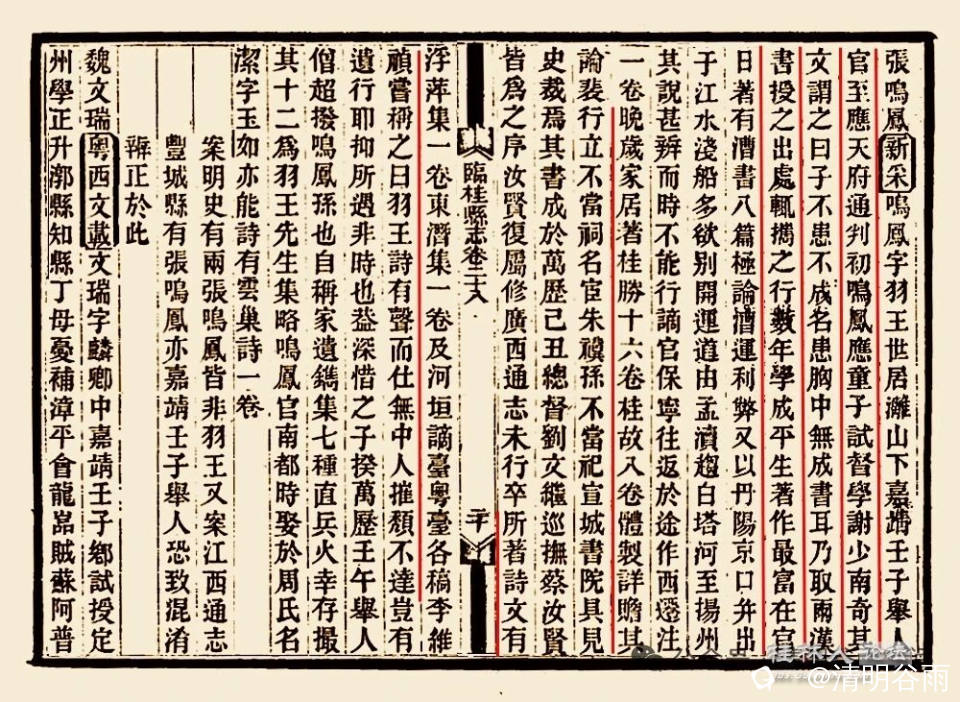 張鳴鳳新采鳴鳳字羽王世居灕山下嘉靖壬子舉人
官至應天府通判初鳴鳳應童子試督學謝少南奇其
文謂之曰子不患不成名患胸中無成書耳乃取兩漢
書授之出處輒攜之行數年學成平生著作最富在官
日著有漕書八篇極論漕運利弊又以丹陽京口弁出
于江水淺船多欲別開運道由孟瀆趨白塔河至揚州
其說甚辨而時不能行謫官保寧往返於途作西遷注
一卷晚歲家居著桂勝十六卷桂故八卷體製詳贍其
論裴行立不當祠名宦朱禩孫不當祀宣城書院具見
史裁焉其書成於萬歷己丑總督劉文繼巡撫蔡汝賢
皆爲之序汝賢復屬修廣西通志未行卒所著詩文有
臨桂縣志卷二十八
二十
浮萍集一卷東潛集一卷及河垣謫臺粵臺各稿李維
禎嘗稱之曰羽王詩有聲而仕無中人摧頹不達豈有
遺行耶抑所遇非時也葢深惜之子揆萬歷壬午舉人
僧超撥鳴鳳孫也自稱家遺鐫集七種直兵火幸存撮
其十二爲羽王先生集略鳴鳳官南都時娶於周氏名
潔字玉如亦能詩有雲巢詩一卷
案明史有兩張鳴鳳皆非羽王又案江西通志
豐城縣有張鳴鳳亦嘉靖壬子舉人恐致混淆
辨正於此
魏文瑞粵西文載文瑞字麟鄉中嘉靖壬子鄉試授定
州學正升漷縣知縣丁母憂補漳平會龍嵓賊蘇阿普
桂林人
@清明谷雨